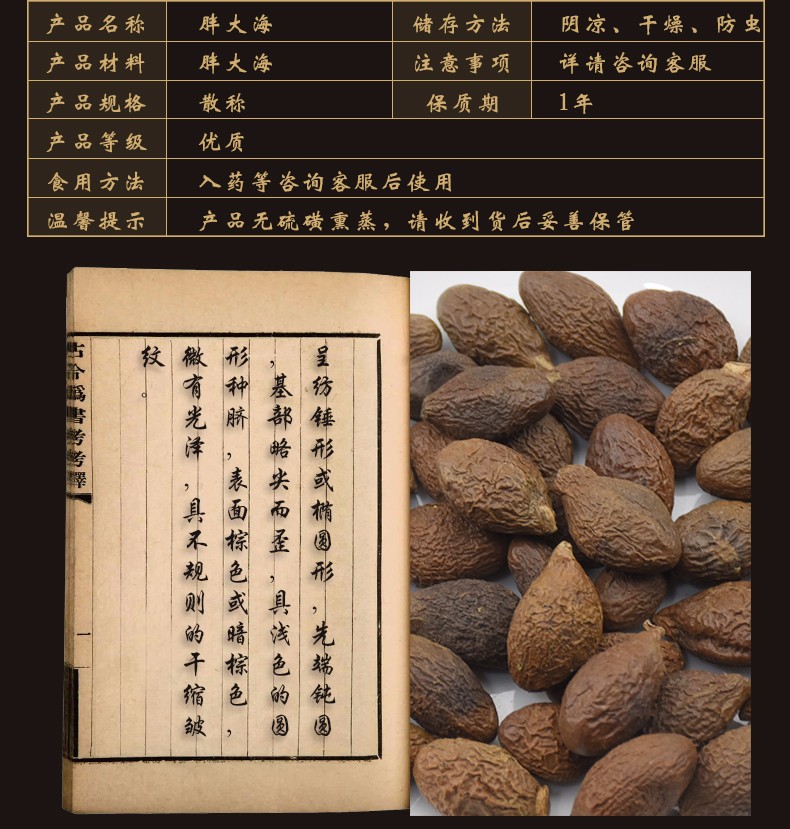 产品名称 胖大海 储存方法 阴凉、干燥、防虫
产品材料 胖大海 注意事项 详请咨询客服
产品规格 散称 保质期 1年
产品等级 优质
食用方法 入药等咨询客服后使用
温馨提示 产品无硫磺熏蒸，请收到货后妥善保管
呈纺锤形或椭圆形，先端钝圆
，基部略尖而歪，具浅色的圆
形种脐，表面棕色或暗棕色，
微有光泽，具不规则的干缩皱
纹。
古今偽書考考釋
一